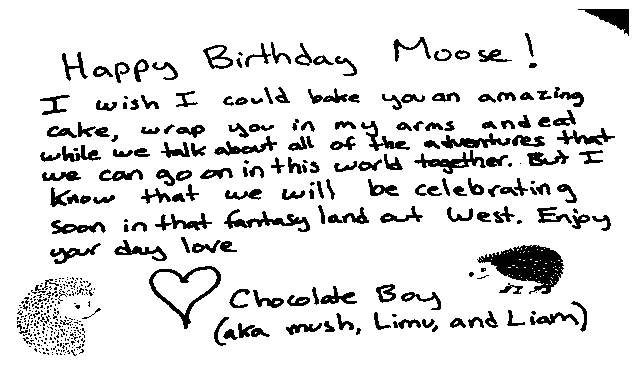 Happy Birthday Moose!
I wish I could bake you an amazing
cake, wrap you in my arms and eat
while we talk about all of the adventures that
we can go on in this world together. But I
know that we will be celebrating
soon in that fantasy land out West. Enjoy
your day love
Chocolate Boy
(aka mush, Limu, and Liam)